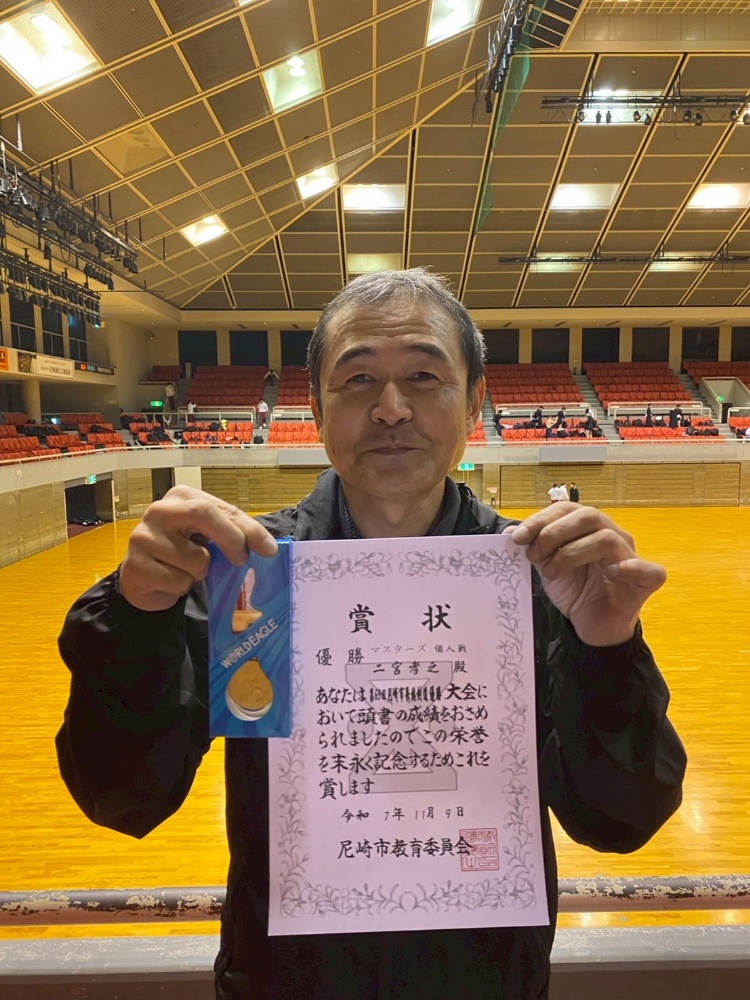 賞状
優勝 マスターズ 個人戦
二宮孝之 殿
あなたは 大会に
おいて頭書の成績をおさめ
られましたのでこの栄誉
を末永く記念するためこれを
賞します
令和 7年 11月 9日
尼崎市教育委員会
WORLD EAGLE